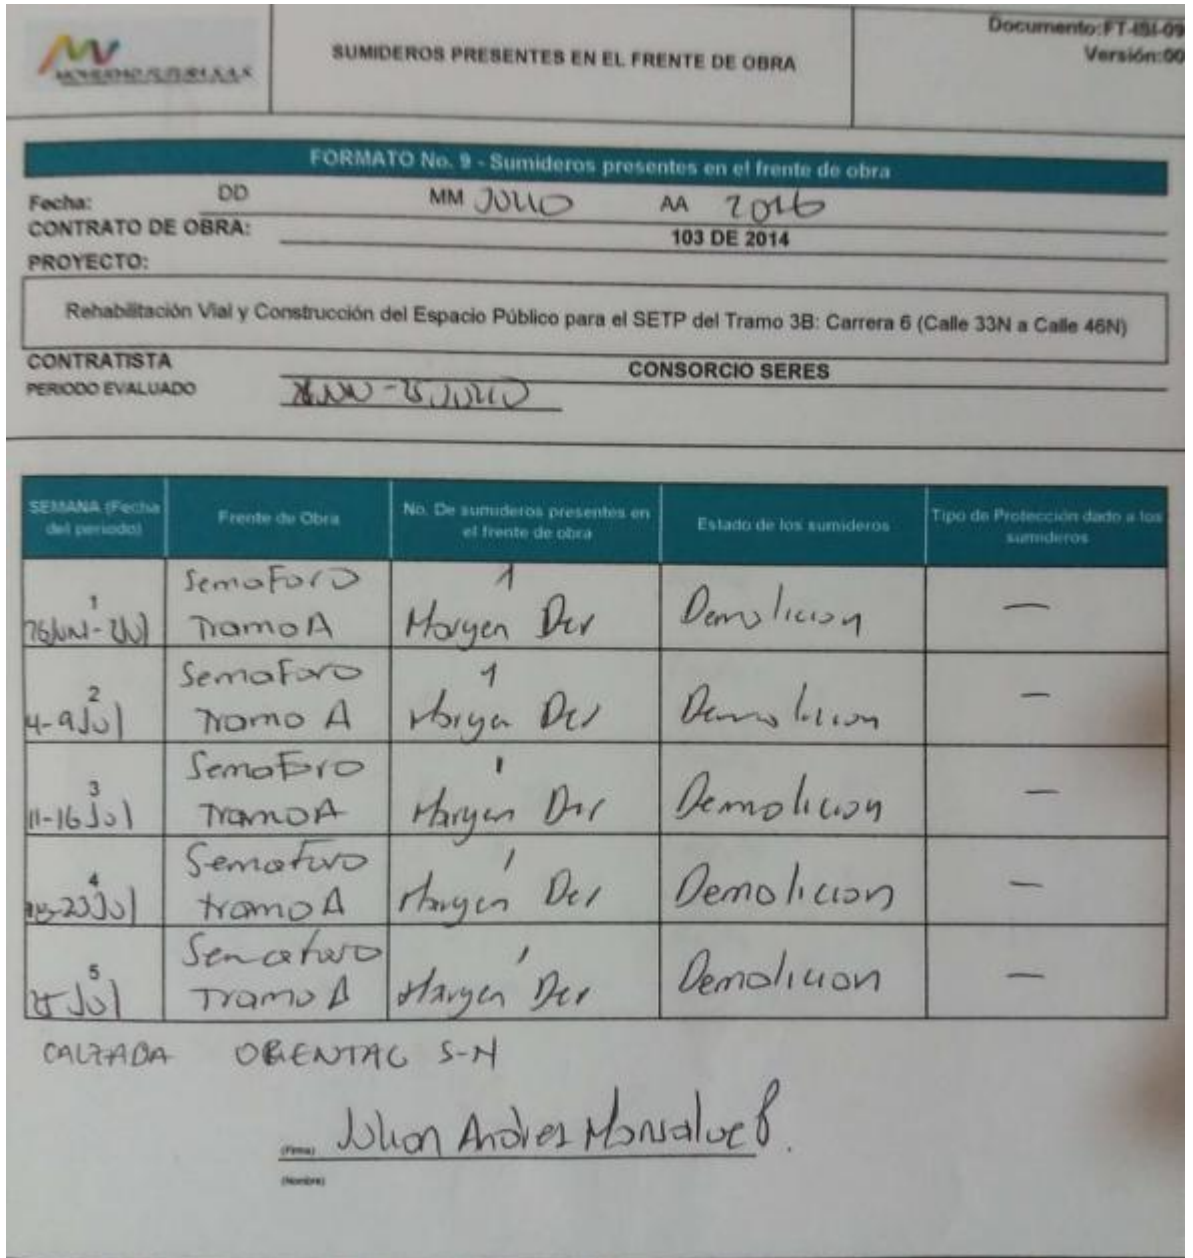 Documento:FT-ISI-09
Versión:00
SUMIDEROS PRESENTES EN EL FRENTE DE OBRA
MOVILIDAD FUTURA S.A.S
FORMATO No. 9 - Sumideros presentes en el frente de obra
Fecha: DD MM JULIO AA 2016
CONTRATO DE OBRA: 103 DE 2014
PROYECTO:
Rehabilitación Vial y Construcción del Espacio Público para el SETP del Tramo 3B: Carrera 6 (Calle 33N a Calle 46N)
CONTRATISTA CONSORCIO SERES
PERIODO EVALUADO JUN - 25 JULIO
SEMANA (Fecha del periodo) Frente de Obra No. De sumideros presentes en el frente de obra Estado de los sumideros Tipo de Protección dado a los sumideros
1 Semaforo 1
Tramo A Margen Der Demolicion —
2 Semaforo 1
4-9 Jul Tramo A Margen Der Demolicion —
3 Semaforo 1
11-16 Jul Tramo A Margen Der Demolicion —
4 Semaforo 1
18-23 Jul tramo A Margen Der Demolicion —
5 Semaforo 1
25 Jul Tramo A Margen Der Demolicion —
CALZADA ORIENTAL S-N
(Firma) Julian Andres Monsalve B.
(Nombre)